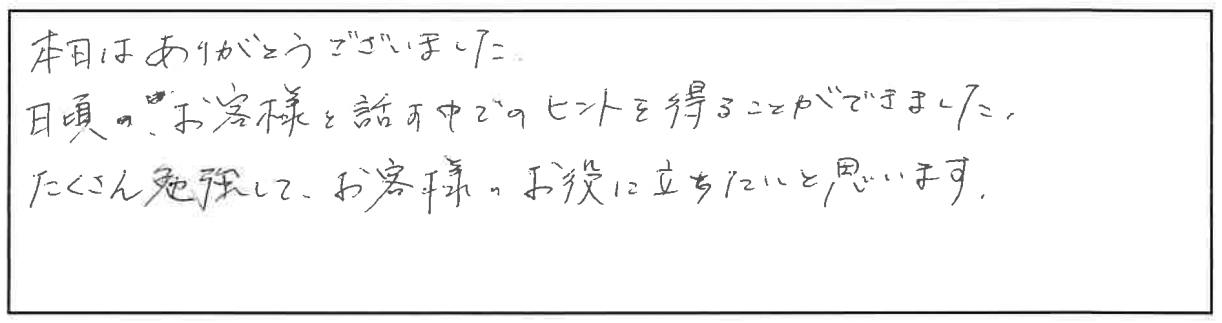 本日はありがとうございました
日頃の、お客様と話す中でのヒントを得ることができました。
たくさん勉強して、お客様のお役に立ちたいと思います。